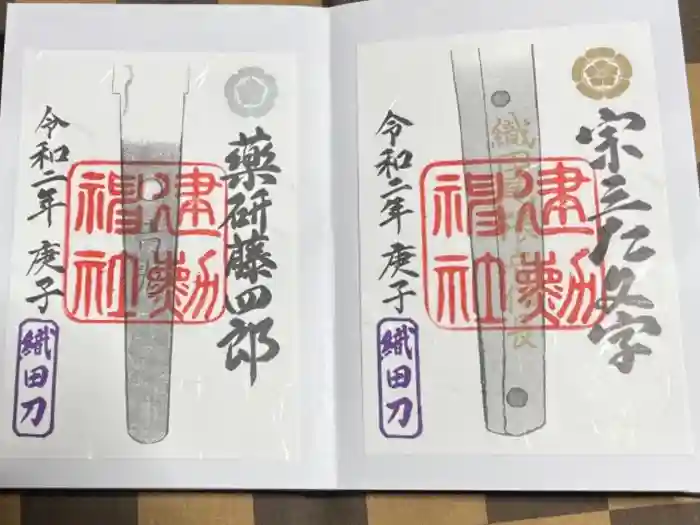 宗三左文字
建勲
神社
織田尾張守信長
令和二年 庚子
織田刀
薬研藤四郎
建勲
神社
令和二年 庚子
織田刀